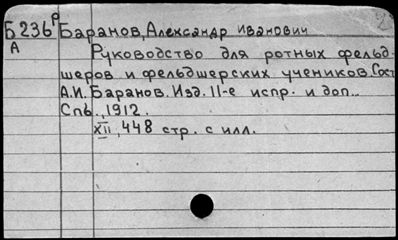 Б236р Баранов, Александр Иванович
А Руководство для ротных фельд-
шеров и фельдшерских учеников. Сост.
А.И. Баранов. Изд. 11-е испр. и доп..
Спб., 1912.
XII, 448 стр. с илл.